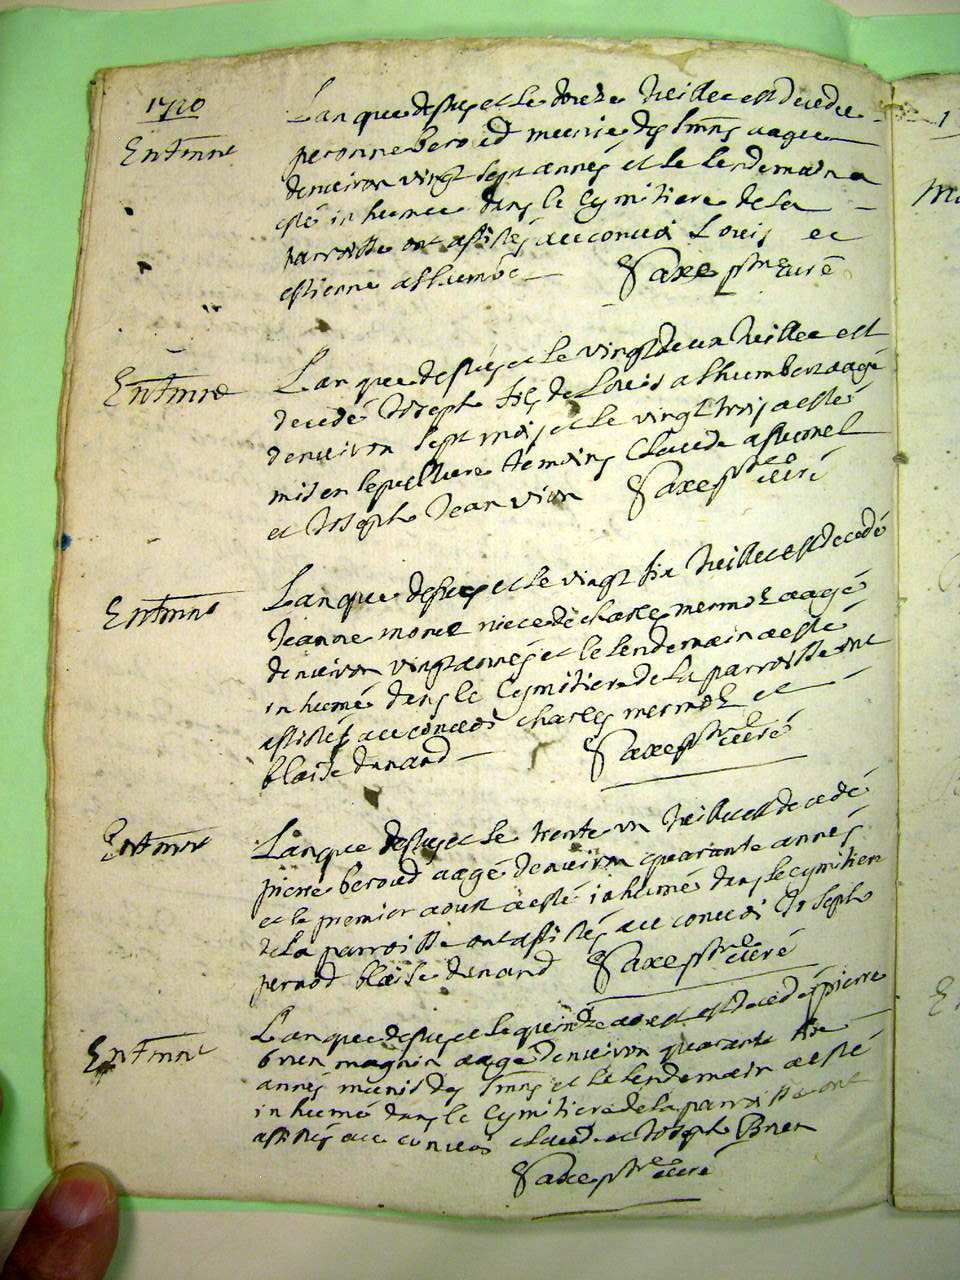 1720
Enterrmt
L an que dessus et le douze Jeillet est decedee
peronne beroud meunie des Smns aagee
denuiron vingt sept annés et le lendemain a
esté inhumee dans le Cymitiere de la
parroisse ont assistés au conuoi Louis et
estienne allumbe Saxe ptre curé
Enterrmt
L an que dessus et le vingt deux Jeillet est
decedé Joseph fils de Louis allhumbert aagé
denuiron sept mois et le vingt trois a esté
mis en sepulture temoins Claude
et Joseph Jean vion Saxe ptre curé
Enterrmt
L an que dessus et le vingt six Jeillet est decedé
Jeanne monet niece de charles mermoz aagé
denuiron vingt annés et le lendemain a esté
inhumé dans le Cymitiere de la parroisse ont
assistés au conuoi charles mermoz et
blaise dunand Saxe ptre curé
Enterrmt
L an que dessus et le trente un Jeillet est decedé
pierre beroud aagé denuiron quarante annés
et le premier aoust a esté inhumé dans le cymitiere
de la parroisse ont assistés au conuoi Joseph
pernod blaise dunand Saxe ptre curé
Enterrmt
L an que dessus et le quinze aoust est decedé pierre
brun magnin aagé denuiron quarante six
annés munis des Smns et le lendemain a esté
inhumé dans le Cymitiere de la parroisse ont
assistés au conuoi claude et Joseph Brun
Saxe ptre curé